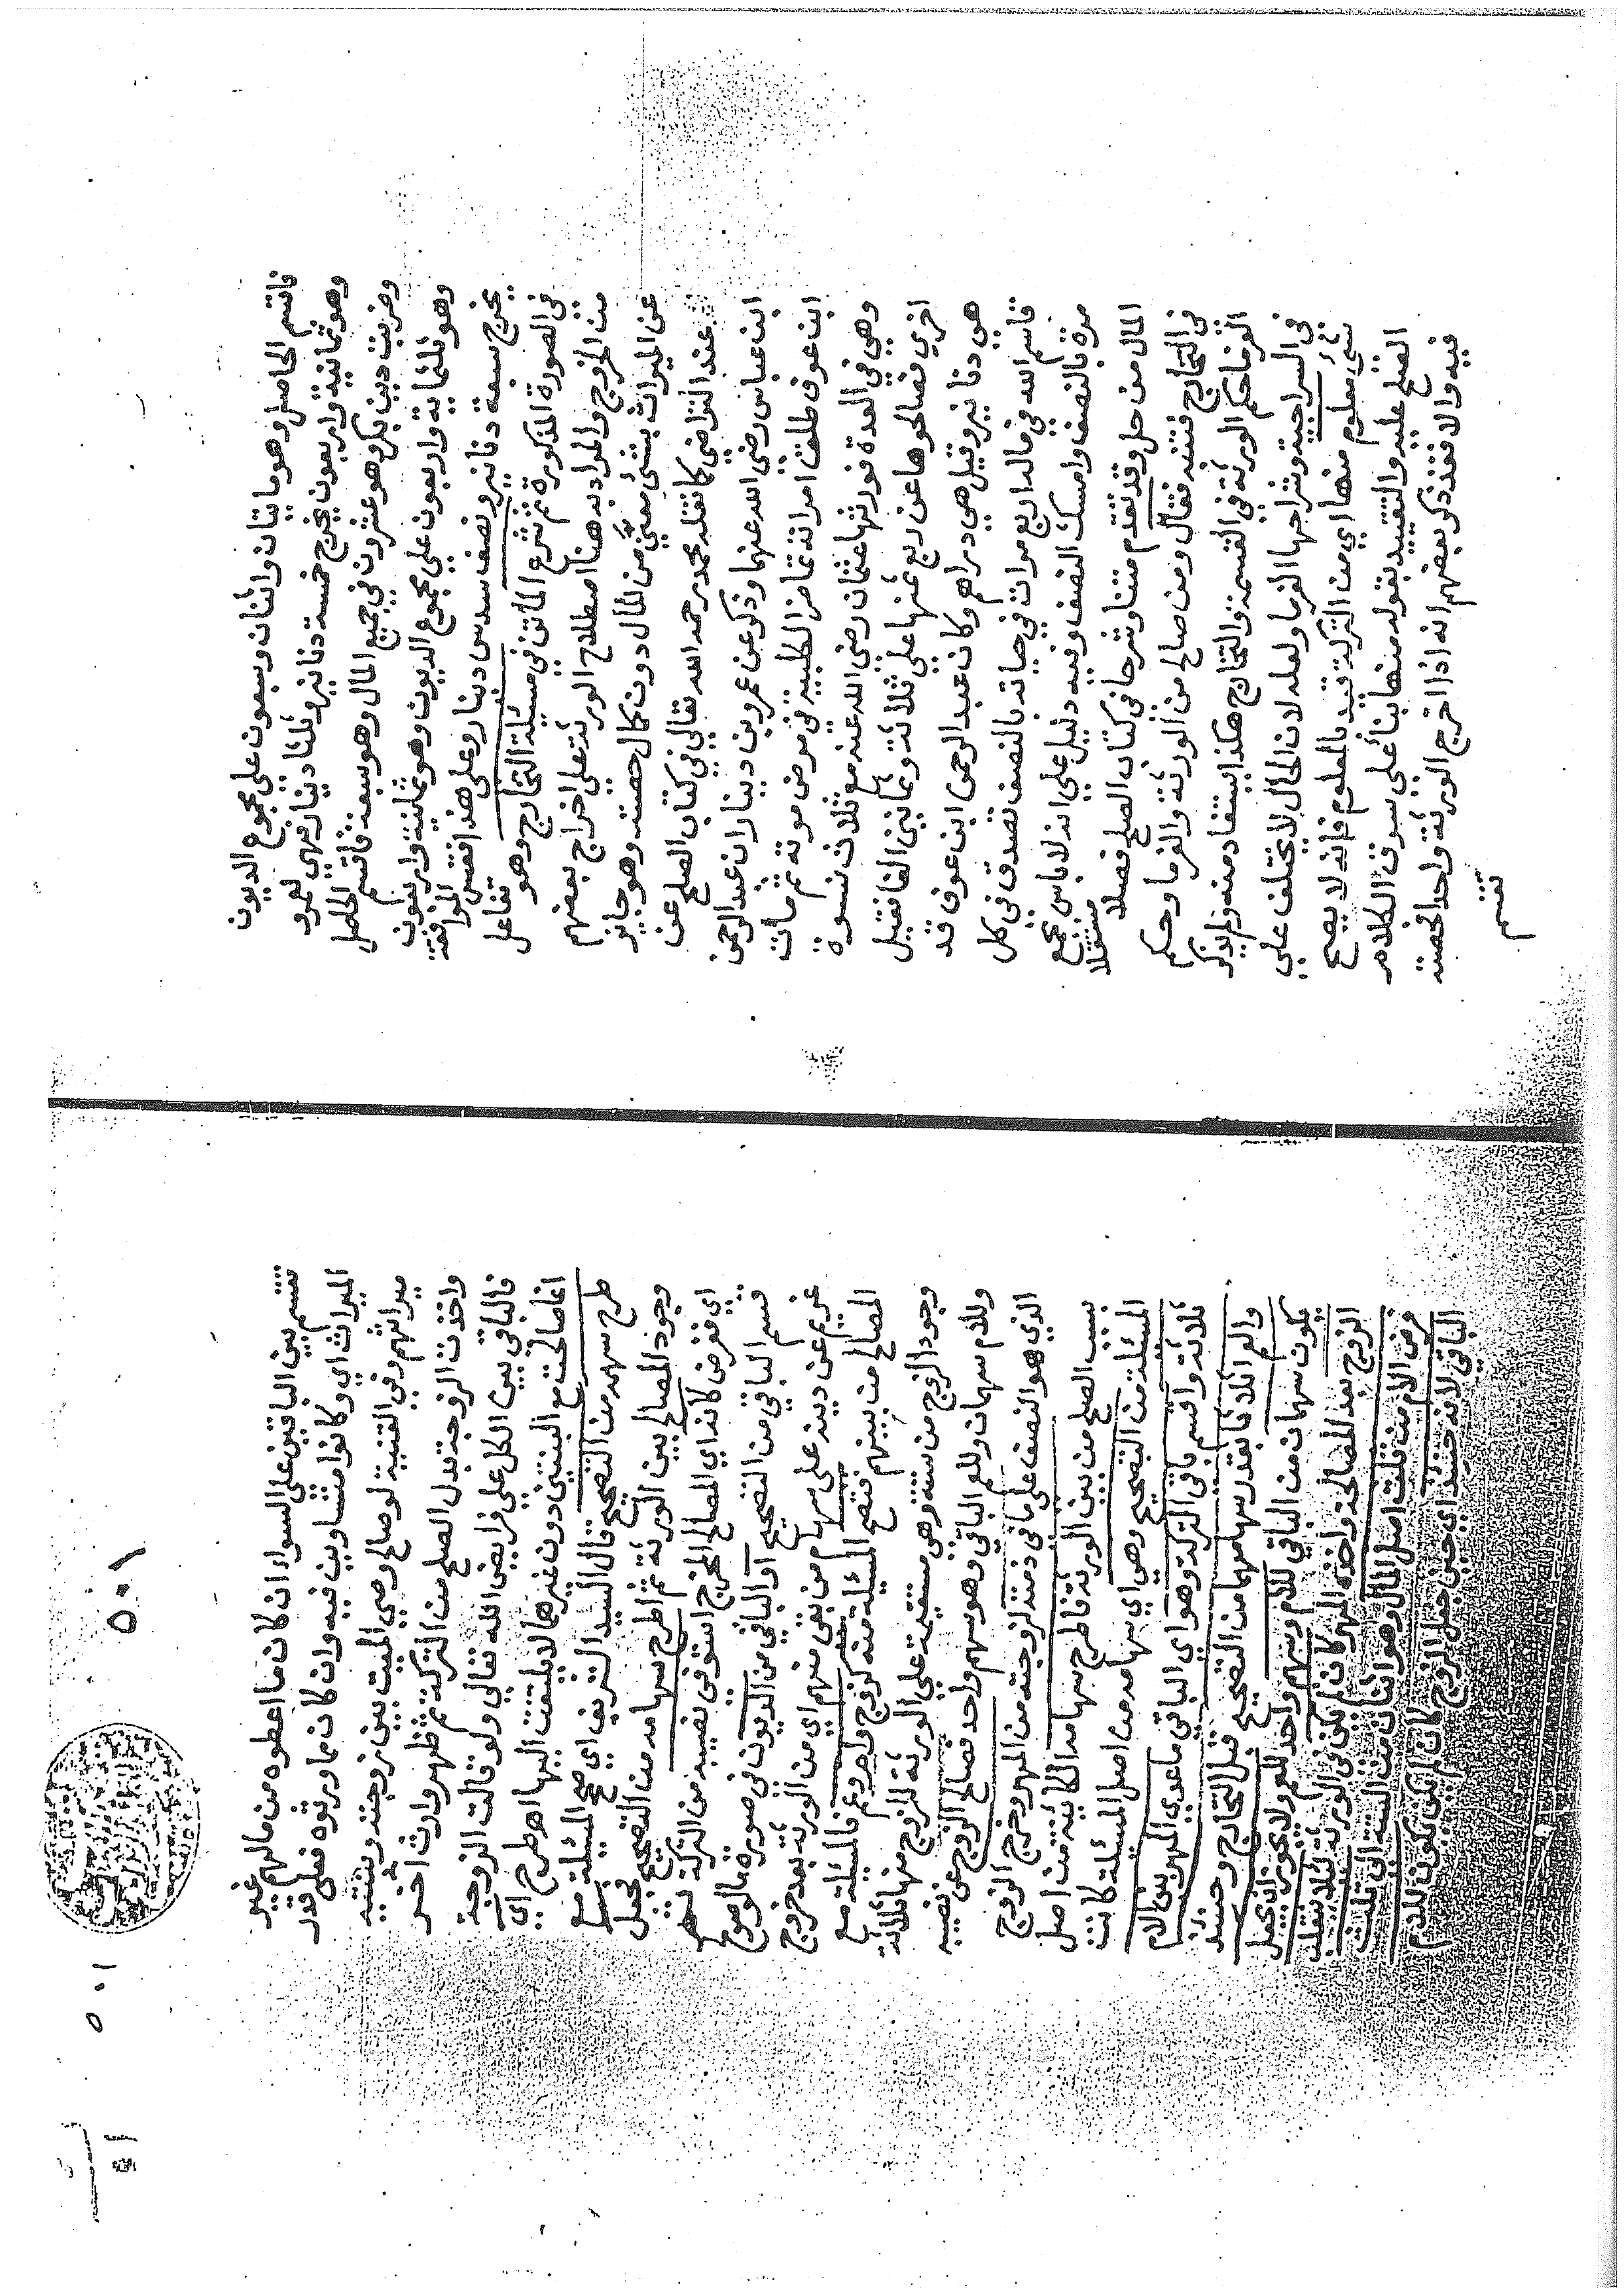 فاقسم الحاصل وهو مايتان واثنان وسبعون علي مجموع الديون
وهو ثمانية واربعون يخرج خمسة دنانير وثلثا دينار فهي لعمرو
وضربت دين بكر وهو عشرون في جميع المال وهو سبعة فاقسم الحاصل
وهو ثلثماية واربعون علي مجموع الديون وهو ثمانية واربعون
يخرج سبعة دنانير ونصف سدس دينار وعلي هذا فقس الموافقة
في الصورة المذكورة ثم شرع الماتن في مسئلة التخارج وهو تفاعل
من الخروج والمراد به هنا اصطلاح الورثة علي اخراج بعضهم
عن الميراث بشئ معين من المال دون كمال حصته وهو جايز
عند التراضي كما نقله محمد رحمه الله تعالي في كتاب الصلح عن
ابن عباس رضي الله عنهما وذكر عن عمرو بن دينار ان عبد الرحمن
ابن عوف طلقت امراته تماضر الكلبية في مرض موته ثم مات
وهي في العدة فورثها عثمان رضي الله عنه مع ثلاث نسوة
اخري فصالحوها عن ربع ثمنها علي ثلاثة وثمانين الفا فقيل
هي دنانير وقيل هي دراهم وكان عبد الرحمن ابن عوف قد
قاسم الله في ماله اربع مرات في حياته بالنصف تصدق في كل
مرة بالنصف وامسك النصف وفيه دليل علي انه لا باس بجمع
المال من حل وقد تقدم متنا وشرحا في كتاب الصلح فصلا مستقلا
في التخارج فتنبه فقال ومن صالح من الورثة والغرما وحكم
الغرما حكم الورثة في القسمة والتخارج هكذا يستفاد منه ولم يذكر
في السراجية وشراحها الغرما ولعله لان الحال لا يختلف علي
شئ معلوم منها اي من التركة قيد بالمعلوم فانه لا يصح
الصلح عليه والتقييد بقوله منها بنا علي سوق الكلام
فيه والا فقد ذكر بعضهم انه اذا اخرج الورثة واحدا فحصته
تقسم
٥٠١
٥٠١
تقسم بين الباقين علي السواء ان كان ما اعطوه من مالهم غير
الميراث اي وكانوا متساوين فيه وان كان مما ورثوه فعلي قدر
ميراثهم وفي القنية لو صالح وصي الميت بين زوجته وبنتيه
واخذت الزوجة بدل الصلح من التركة ثم ظهر وارث اخر
فالباقي بين الكل علي فرايض الله تعالي ولو قالت الزوجة
انما صالحت مع البنتين دون غيرهما لا يلتفت اليها اهـ طرح اي
طرح سهمه من التصحيح قال السيد الشريف اي صحح المسئلة مع
وجود المصالح بين الورثة ثم اطرح سهامه من التصحيح بجعل
اي ففرض كانه اي المصالح المخرج استوفي نصيبه من التركة ثم
قسم الباقي من التصحيح او الباقي من الديون في صورة ما لو صولح
غريم عن دينه علي سهام من بقي منهم اي من الورثة بعد خروج
المصالح من بينهم فتصح المسئلة منه كزوج وام وعم فالمسئلة مع
وجود الزوج من ستة وهي مستقيمة علي الورثة للزوج منها ثلاثة
وللام سهمان وللعم الباقي وهو سهم واحد فصالح الزوج عن نصيبه
الذي هو النصف علي ما في ذمته لزوجته من المهر وخرج الزوج
بسبب الصلح من بين الورثة فاطرح سهامه الكائنة من اصل
المسئلة من التصحيح وهي اي سهامه من اصل المسئلة كانت
ثلاثة واقسم باقي التركة وهو اي الباقي ما عدي المهر بين الام
والعم اثلاثا بقدر سهامهما من التصحيح قبل التخارج وحينئذ
يكون سهمان من الباقي للام وسهم واحد للعم ولا يجوز ان يجعل
الزوج بعد المصالحة واخذه المهر كان لم يكن في الورثة لئلا ينقلب
فرض الام من ثلث اصل المال وهو اثنان من الستة الي ثلث
الباقي لانه حينئذ اي حين جعل الزوج كان لم يكن يكون للام